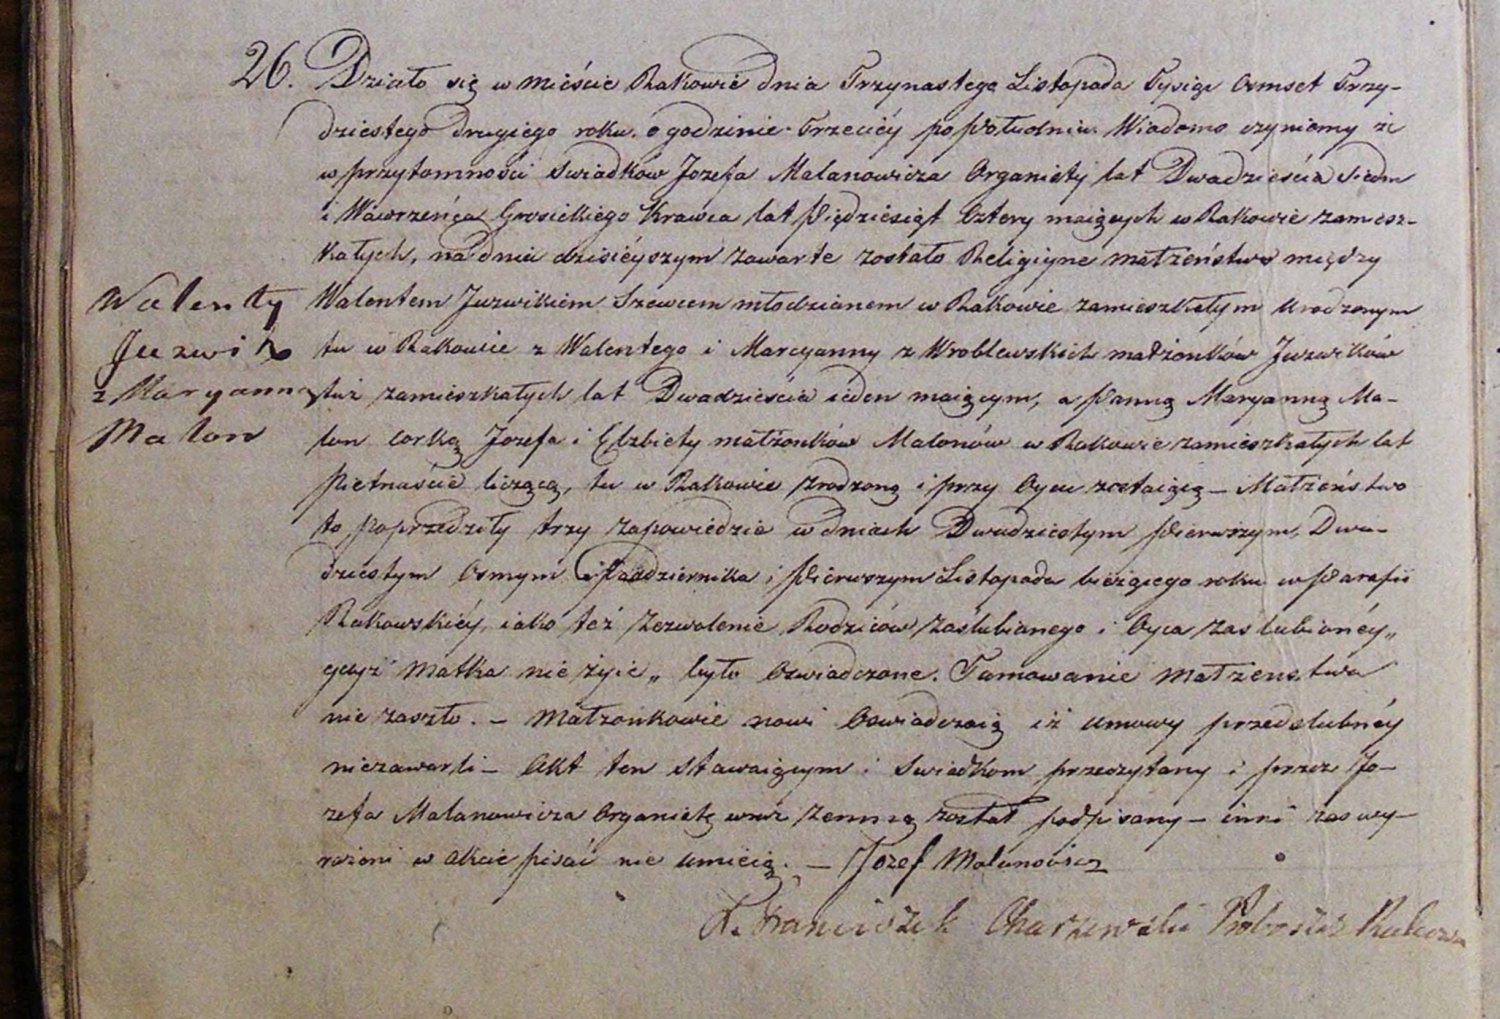 26. Działo się w Mieście Rakowie dnia Trzynastego Listopada Tysiąc Osmset Trzy-
dziestego drugiego roku. o godzinie Trzeciéy popołudniu. Wiadomo czyniemy że
w przytomności Swiadków Jozefa Malanowicza Organisty lat Dwadzieścia Siedm
i Wawrzeńca Grosickiego Krawca lat Pięćdziesiąt Cztery maiących w Rakowie zamiesz-
kałych, na dniu dzisiéyszym zawarte zostało Religiyne małżeństwo między
Walenty
Walentem Juzwikiem Szewcem młodzianem w Rakowie zamieszkałym urodzonym
Juzwik
tu w Rakowie z Walentego i Maryanny z Wroblewskich małżonków Juzwików
z Maryanną
tuż zamieszkałych lat Dwadzieścia ieden maiącym, a Panną Maryanną Ma-
Malon
lon corką Jozefa i Elzbiety małżonków Malonów w Rakowie zamieszkałych lat
Pietnaście liczącą, tu w Rakowie zrodzoną i przy Oycu zostaiącą – Małżeństwo
to poprzedziły trzy zapowiedzie w dniach Dwudziestym Pierwszym, Dwu-
dziestym Osmym Pazdziernika i Pierwszym Listopada bieżącego roku w Parafii
Rakowskiéy, iako też Zezwolenie Rodziców Zaślubianego i Oyca zaślubionéy„
gdyż Matka nie żyie„ było Oswiadczone. Tamowanie Małżenstwa
nie zaszło. – Małżonkowie nowi Oswiadczaią iż Umowy przedslubnéy
niezawarli – Akt ten Stawaiącym i Swiadkom przeczytany i przez Jo-
zefa Malanowicza Organistę wraz zemną został podpisany – inni zas wy-
rażeni w Akcie pisać nie umieią. – Jozef Malanowicz
X. Franciszek Proboszcz